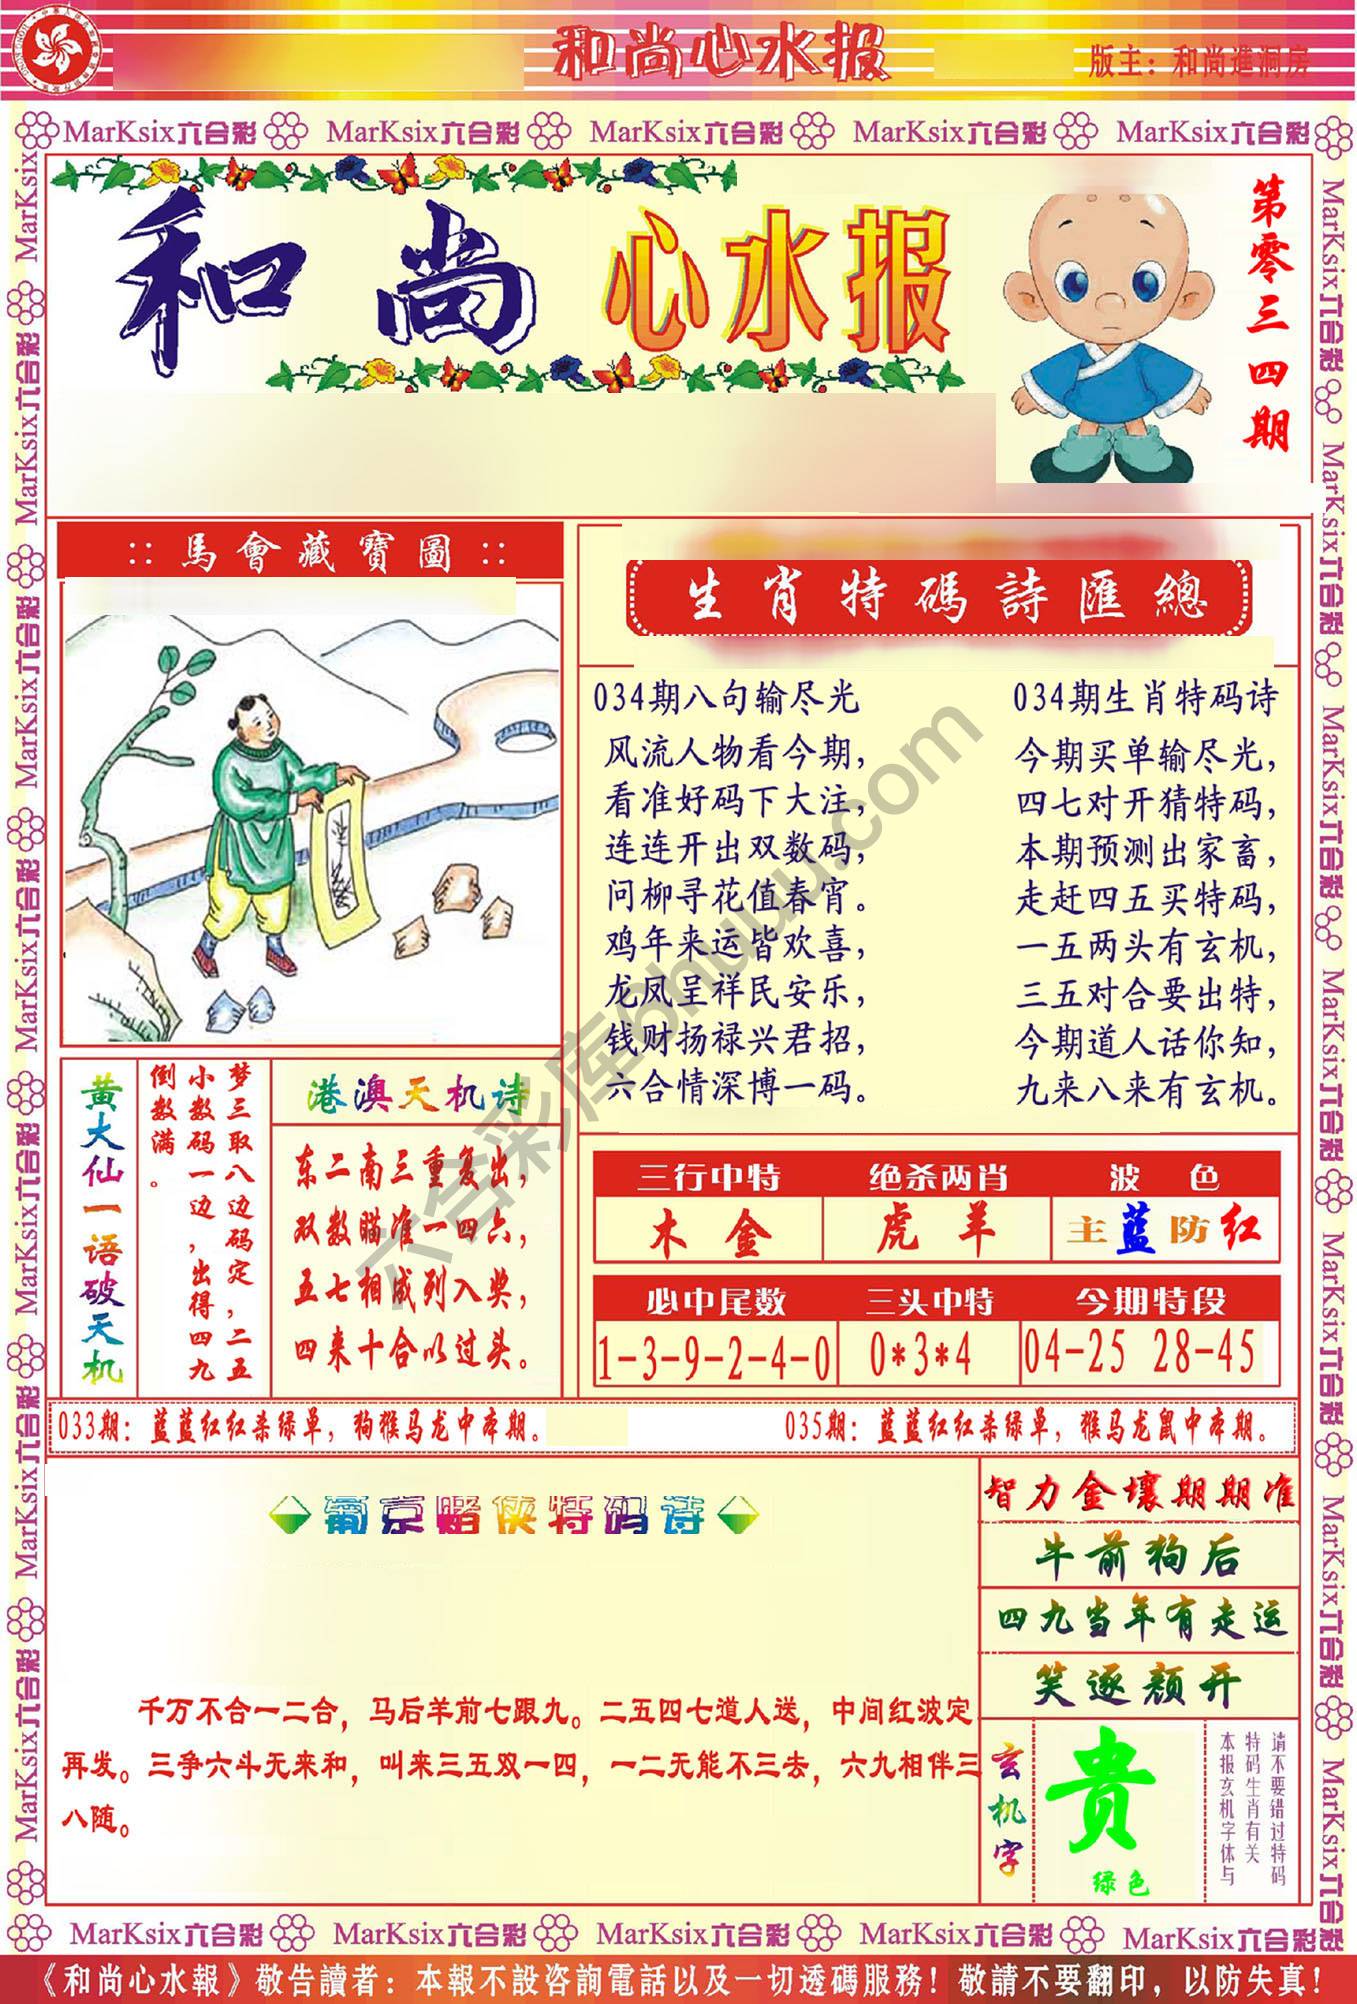 和尚心水报
版主：和尚進洞房
MarKsix六合彩 MarKsix六合彩 MarKsix六合彩 MarKsix六合彩 MarKsix六合彩
和尚心水报
第零三四期
::馬會藏寶圖::
生肖特碼詩匯總
034期八句输尽光
风流人物看今期，
看准好码下大注，
连连开出双数码，
问柳寻花值春宵。
鸡年来运皆欢喜，
龙凤呈祥民安乐，
钱财扬禄兴君招，
六合情深博一码。
034期生肖特码诗
今期买单输尽光，
四七对开猜特码，
本期预测出家畜，
走赶四五买特码，
一五两头有玄机，
三五对合要出特，
今期道人话你知，
九来八来有玄机。
六合彩库6huuu.com
黄大仙一语破天机
梦三取八边码定，二五
小数码一边，出得四九
倒数满。
港澳天机诗
东二南三重复出，
双数瞄准一四六，
五七相成列入奖，
四来十合以过头。
三行中特 绝杀两肖 波色
木金 虎羊 主蓝防红
必中尾数 三头中特 今期特段
1-3-9-2-4-0 0*3*4 04-25 28-45
033期：蓝蓝红红杀绿单，狗猴马龙中本期。
035期：蓝蓝红红杀绿单，猴马龙鼠中本期。
葡京赌侠特码诗
千万不合一二合，马后羊前七跟九。二五四七道人送，中间红波定
再发。三争六斗无来和，叫来三五双一四，一二无能不三去，六九相伴三
八随。
智力金壤期期准
牛前狗后
四九当年有走运
笑逐颜开
玄机字
贵
绿色
请不要错过特码
特码生肖有关
本报玄机字体与
MarKsix六合彩 MarKsix六合彩 MarKsix六合彩 MarKsix六合彩 MarKsix六合彩
《和尚心水報》敬告讀者：本報不設咨詢電話以及一切透碼服務！敬請不要翻印，以防失真！